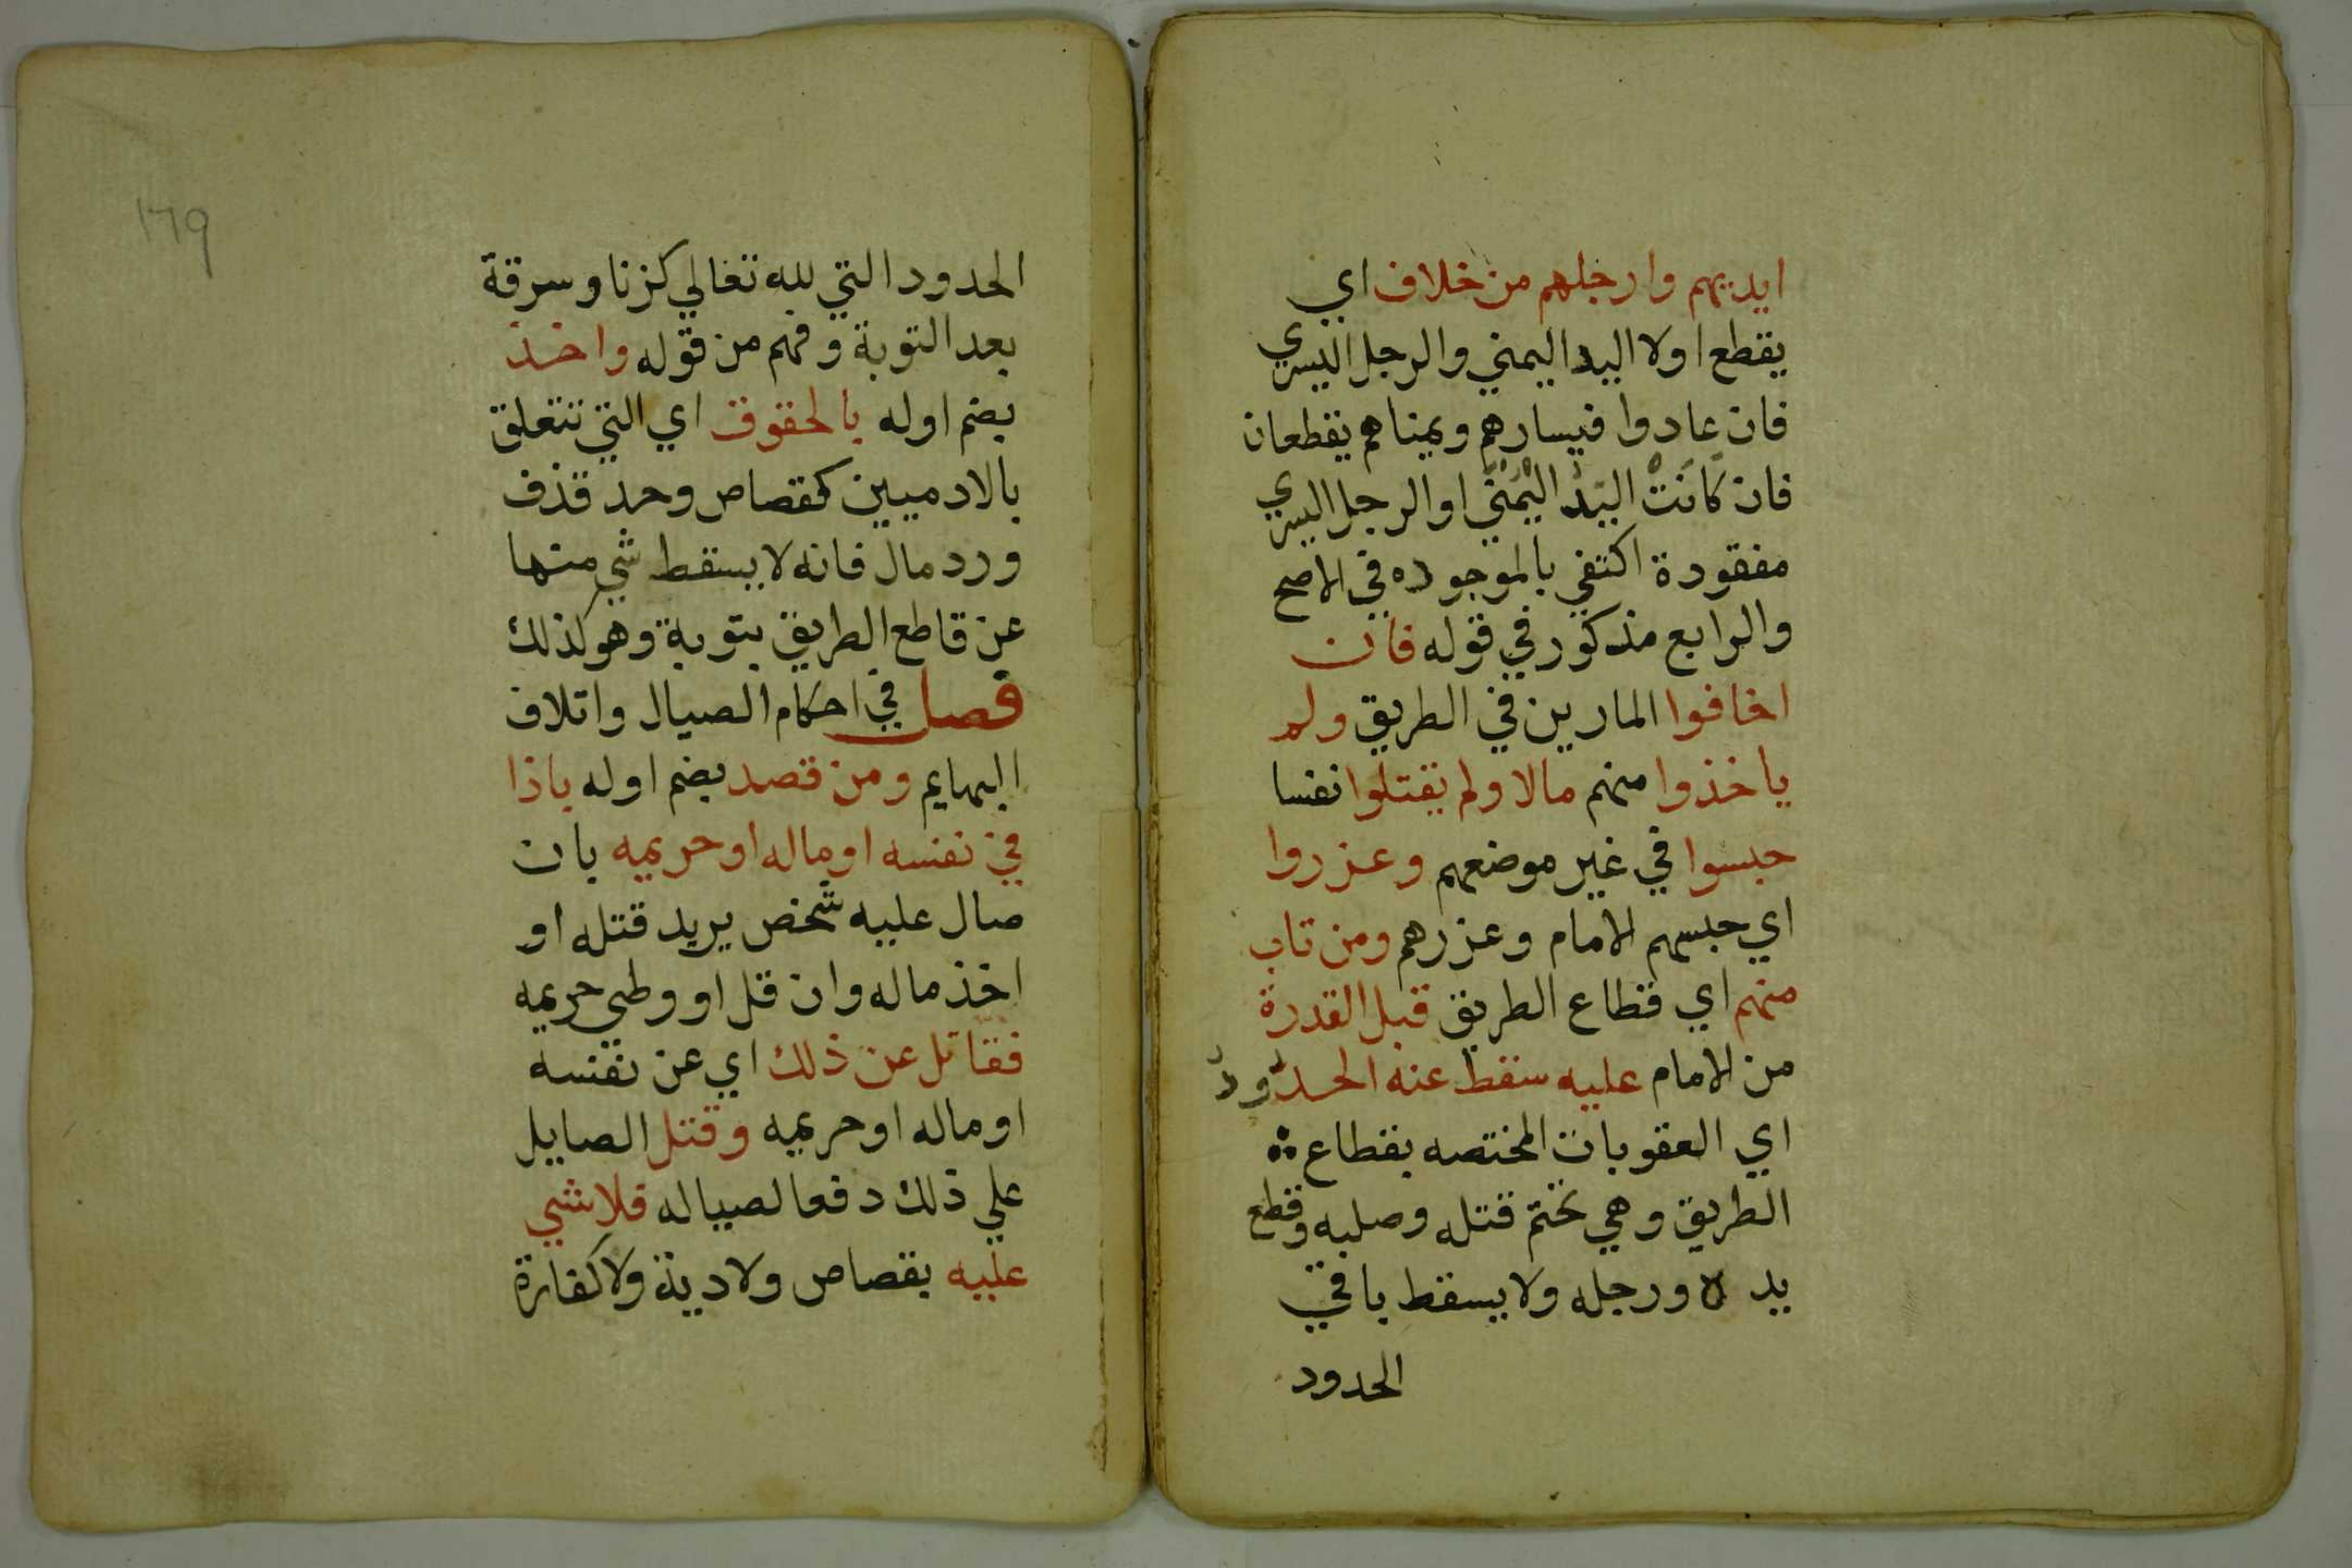 ايديهم وارجلهم من خلاف اي
يقطع اولا اليد اليمني والرجل اليسري
فان عادوا فيسارهم ويمناهم يقطعان
فان كَانَتْ اليَدُ اليُمْنَي او الرجل اليسري
مفقودة اكتفي بالموجوده في الاصح
والرابع مذكور في قوله فان
اخافوا المارين في الطريق ولم
ياخذوا منهم مالا ولم يقتلوا نفسا
حبسوا في غير موضعهم وعزروا
اي حبسهم الامام وعزرهم ومن تاب
منهم اي قطاع الطريق قبل القدرة
من الامام عليه سقط عنه الحدُودُ
اي العقوبات المختصه بقطاع
الطريق وهي تحتم قتله وصلبه وقطع
يده ورجله ولا يسقط باقي
الحدود
١٦٩
الحدود التي لله تعالي كزنا وسرقة
بعد التوبة وفهم من قوله واخذ
بضم اوله بالحقوق اي التي تتعلق
بالادميين كقصاص وحد قذف
ورد مال فانه لا يسقط شي منها
عن قاطع الطريق بتوبة وهو كذلك
فصل في احكام الصيال واتلاف
البهايم ومن قصد بضم اوله باذا
في نفسه او ماله او حريمه بان
صال عليه شخص يريد قتله او
اخذ ماله وان قل او وطي حريمه
فقاتل عن ذلك اي عن نفسه
او ماله او حريمه وقتل الصايل
علي ذلك دفعا لصياله فلا شي
عليه بقصاص ولا دية ولا كفارة